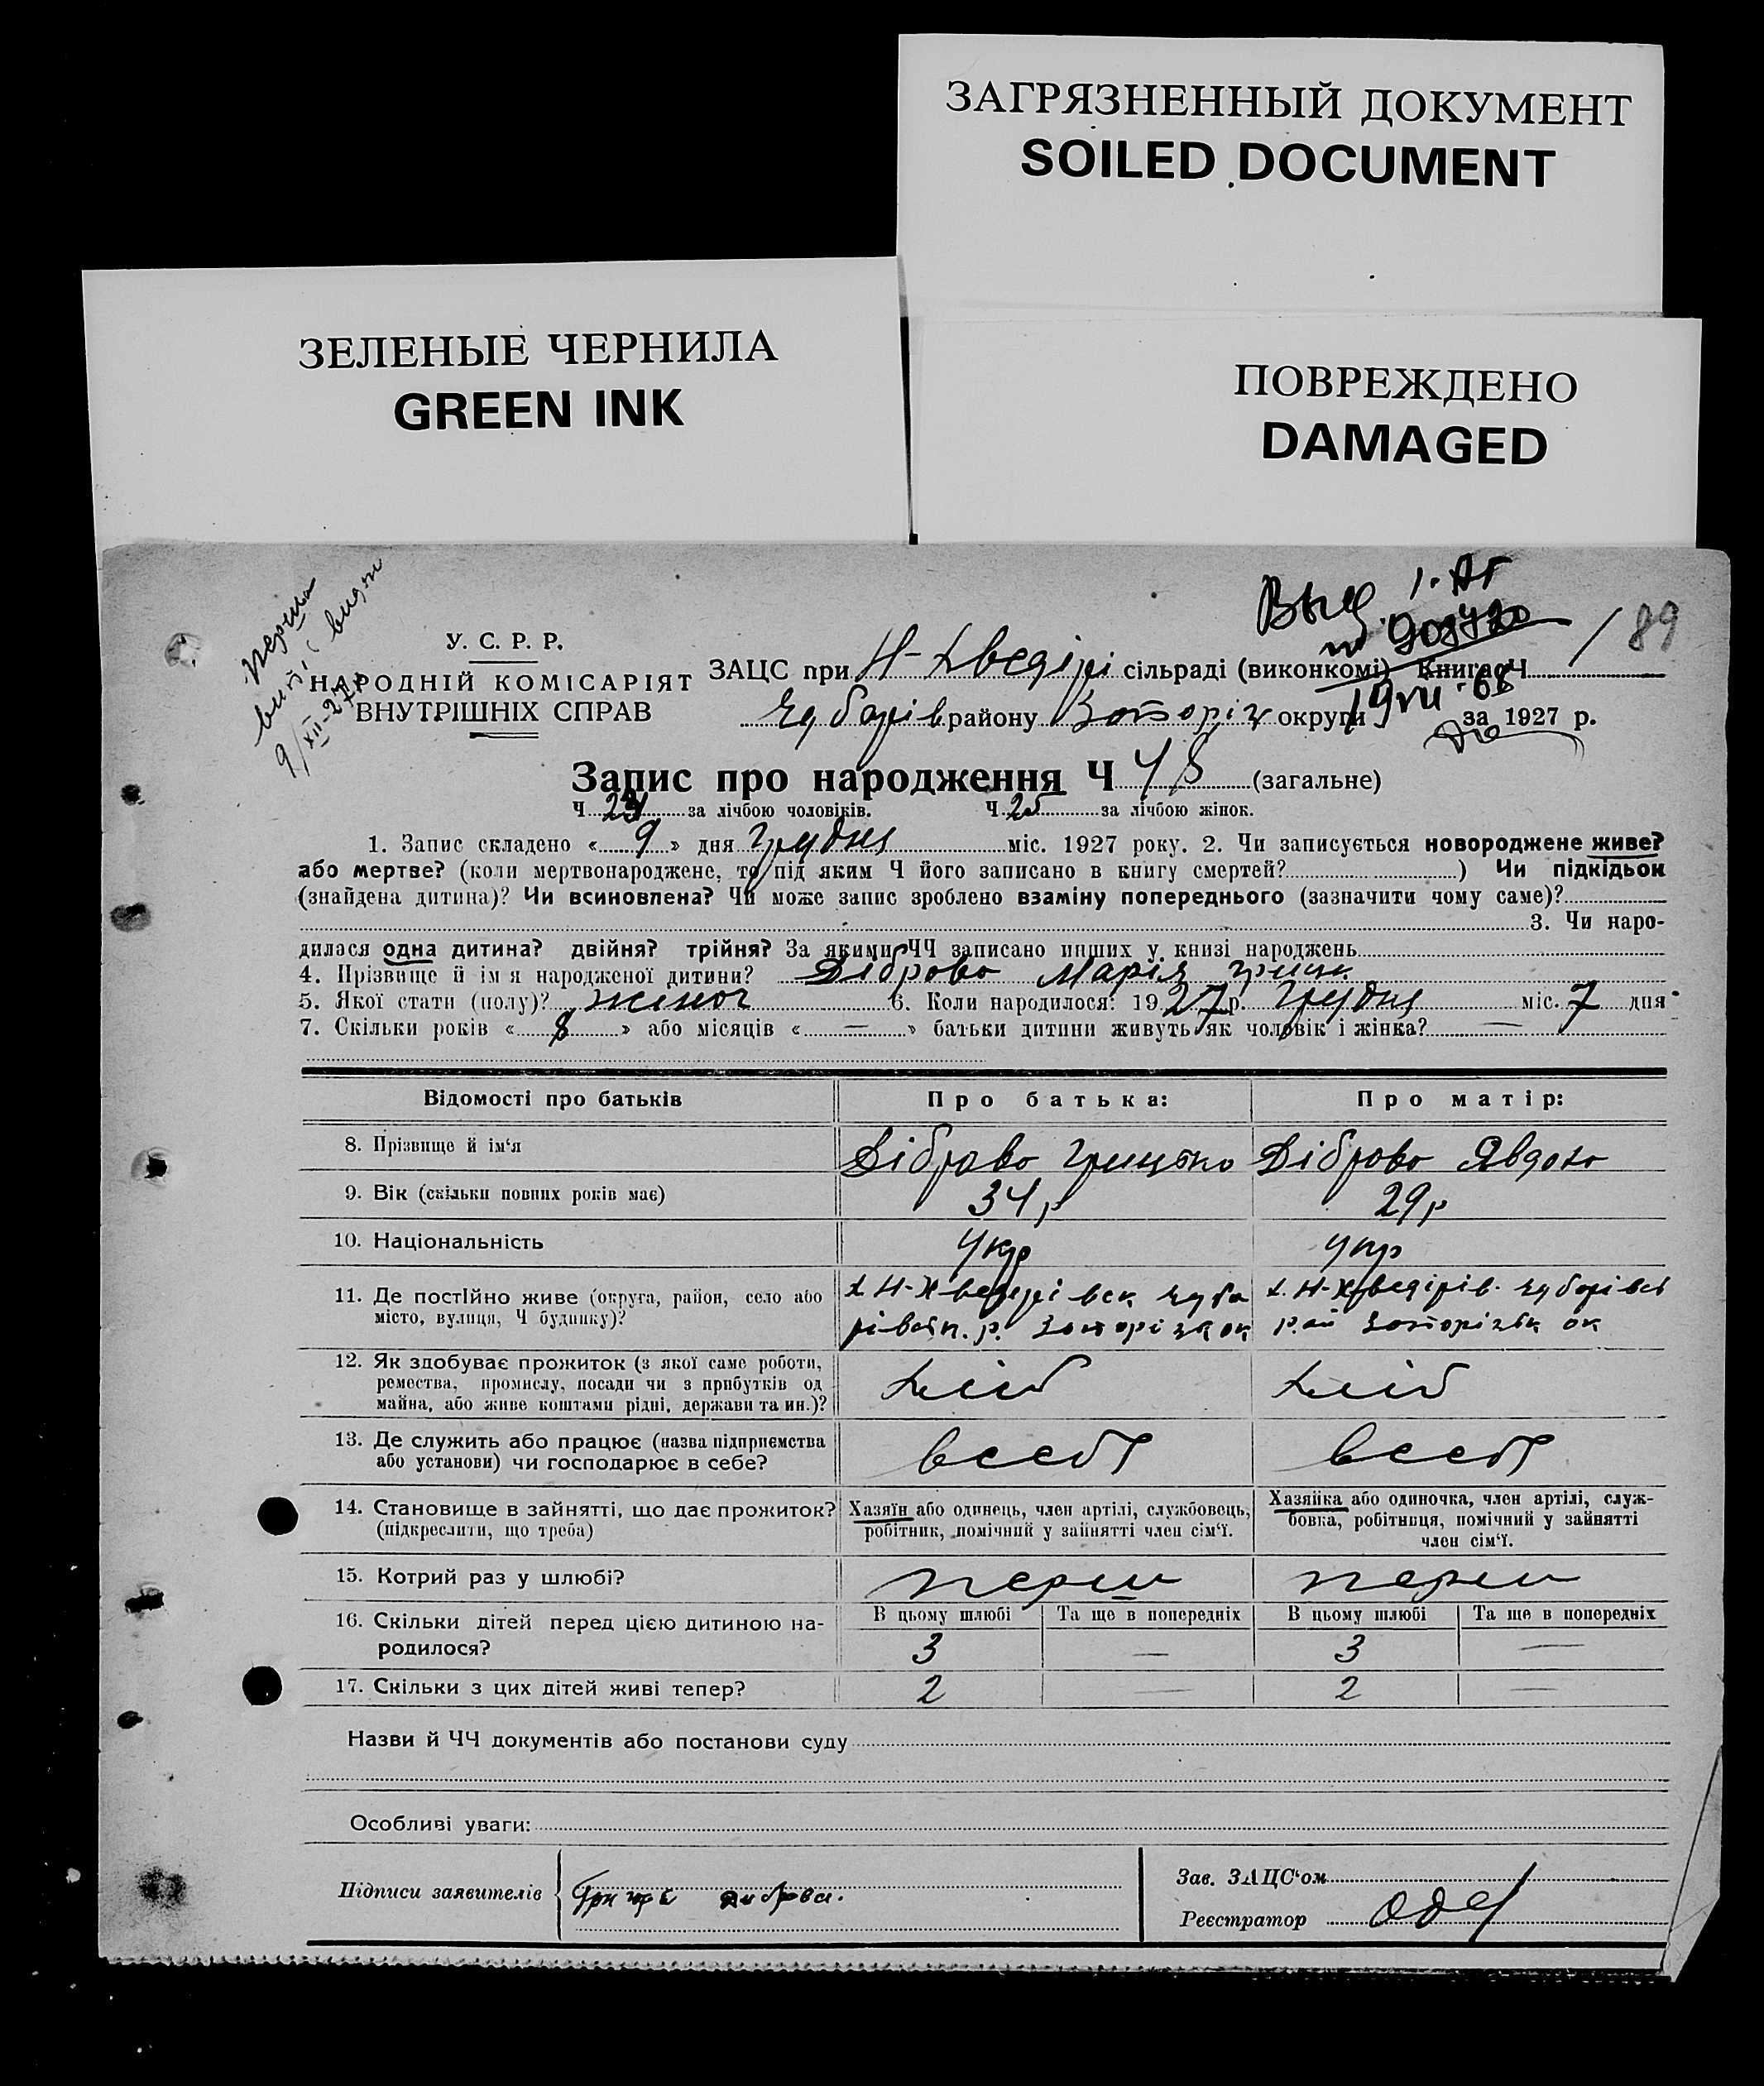 ЗАГРЯЗНЕННЫЙ ДОКУМЕНТ
SOILED DOCUMENT
ЗЕЛЕНЫЕ ЧЕРНИЛА
GREEN INK
ПОВРЕЖДЕНО
DAMAGED
перша
9/XII-27р
89
У. С. Р. Р.
НАРОДНІЙ КОМІСАРІЯТ
ВНУТРІШНІХ СПРАВ
ЗАЦС при сільраді (виконкомі) Книга Ч
району округи за 1927 р.
19 VII-68
Запис про народження Ч 48 (загальне)
Ч. за лічбою чоловіків. Ч. 25 за лічбою жінок.
1. Запис складено « 9 » дня Грудня міс. 1927 року. 2. Чи записується новороджене живе?
або мертве? (коли мертвонароджене, то під яким Ч його записано в книгу смертей? ) Чи підкідьок
(знайдена дитина)? Чи всиновлена? Чи може запис зроблено взаміну попереднього (зазначити чому саме)?
3. Чи наро-
дилася одна дитина? двійня? трійня? За якими ЧЧ записано инших у книзі народжень
4. Прізвище й ім я народженої дитини? Діброво Марія Гриц.
5. Якої стати (полу)? жіноч 6. Коли народилося: 1927 р. Грудня міс. 7 дня
7. Скільки років « 8 » або місяців « — » батьки дитини живуть як чоловік і жінка? —
Відомості про батьків Про батька: Про матір:
8. Прізвище й ім‘я Діброво Грицько Діброво Явдоко
9. Вік (скільки повних років має) 34 р 29 р
10. Національність Укр Укр
11. Де постійно живе (округа, район, село або
місто, вулиця, Ч будинку)?
12. Як здобуває прожиток (з якої саме роботи,
ремества, промислу, посади чи з прибутків од
майна, або живе коштами рідні, держави та ин.)? Хліб Хліб
13. Де служить або працює (назва підприємства
або установи) чи господарює в себе? всебе всебе
14. Становище в зайнятті, що дає прожиток?
(підкреслити, що треба)
Хазяїн або одинець, член артілі, службовець,
робітник, помічний у зайнятті член сім‘ї.
Хазяйка або одиночка, член артілі, служ-
бовка, робітниця, помічний у зайнятті
член сім‘ї.
15. Котрий раз у шлюбі? перши перши
16. Скільки дітей перед цією дитиною на-
родилося?
В цьому шлюбі Та ще в попередніх В цьому шлюбі Та ще в попередніх
3 — 3 —
17. Скільки з цих дітей живі тепер? 2 — 2 —
Назви й ЧЧ документів або постанови суду
Особливі уваги:
Підписи заявителів Диброва.
Зав. ЗАЦС‘ом
Реєстратор